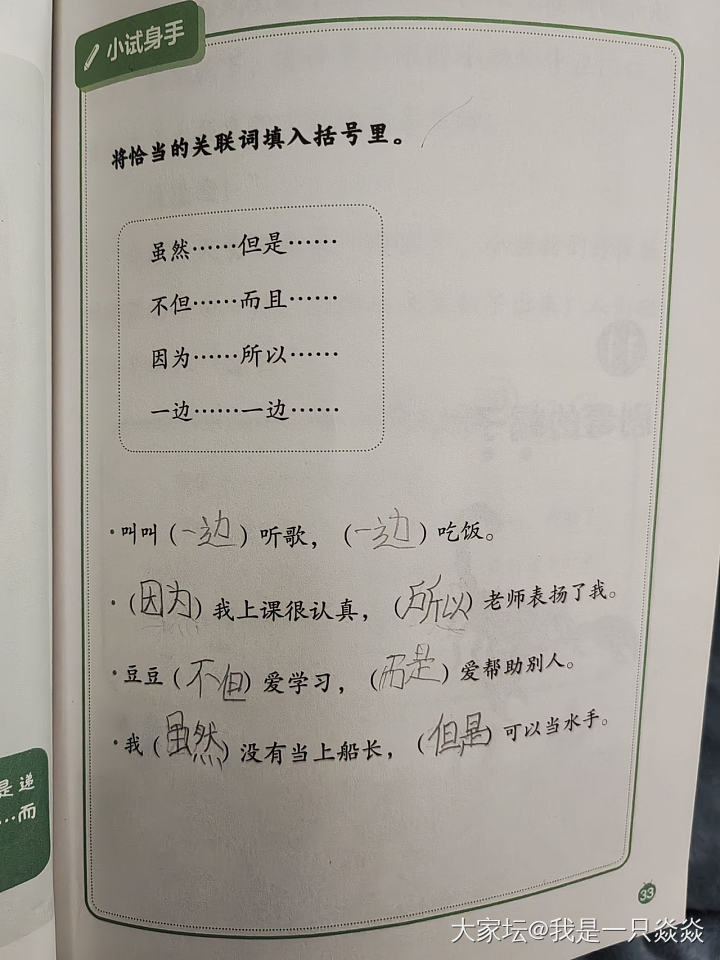 小试身手
将恰当的关联词填入括号里。
虽然……但是……
不但……而且……
因为……所以……
一边……一边……
·叫叫（一边）听歌，（一边）吃饭。
·（因为）我上课很认真，（所以）老师表扬了我。
·豆豆（不但）爱学习，（而是）爱帮助别人。
·我（虽然）没有当上船长，（但是）可以当水手。
是递
…而
33
大家坛@我是一只焱焱